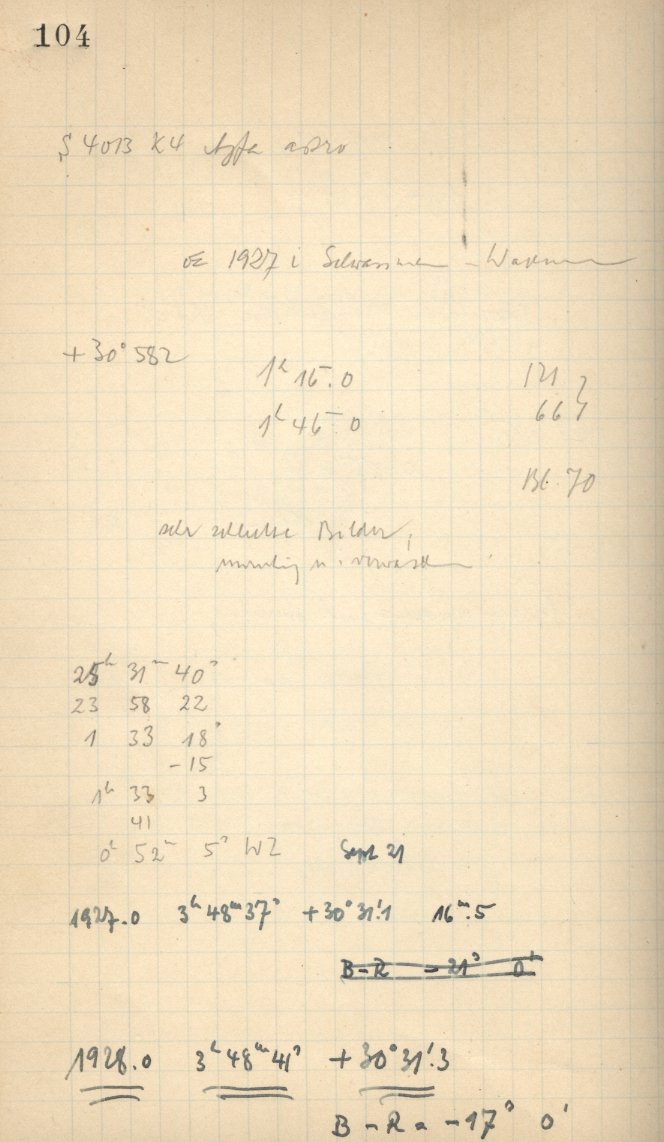 104
S 4013 K4 Agfa astro
1927 i Schwassmann - Wachmann
+30° 582
1h 15m.0 121 }
1h 45m.0 66 }
Bl. 70
sehr schlechte Bilder,
unruhig u. verwaschen.
25h 31m 40s
23 58 22
1 33 18s
-15
1h 33 3
41
0h 52m 5s WZ Sept 21
1927.0 3h 48m 37s +30° 31'.1 16m.5
B-R -21s 0'
1928.0 3h 48m 41s +30° 31'.3
B - R = -17s 0'